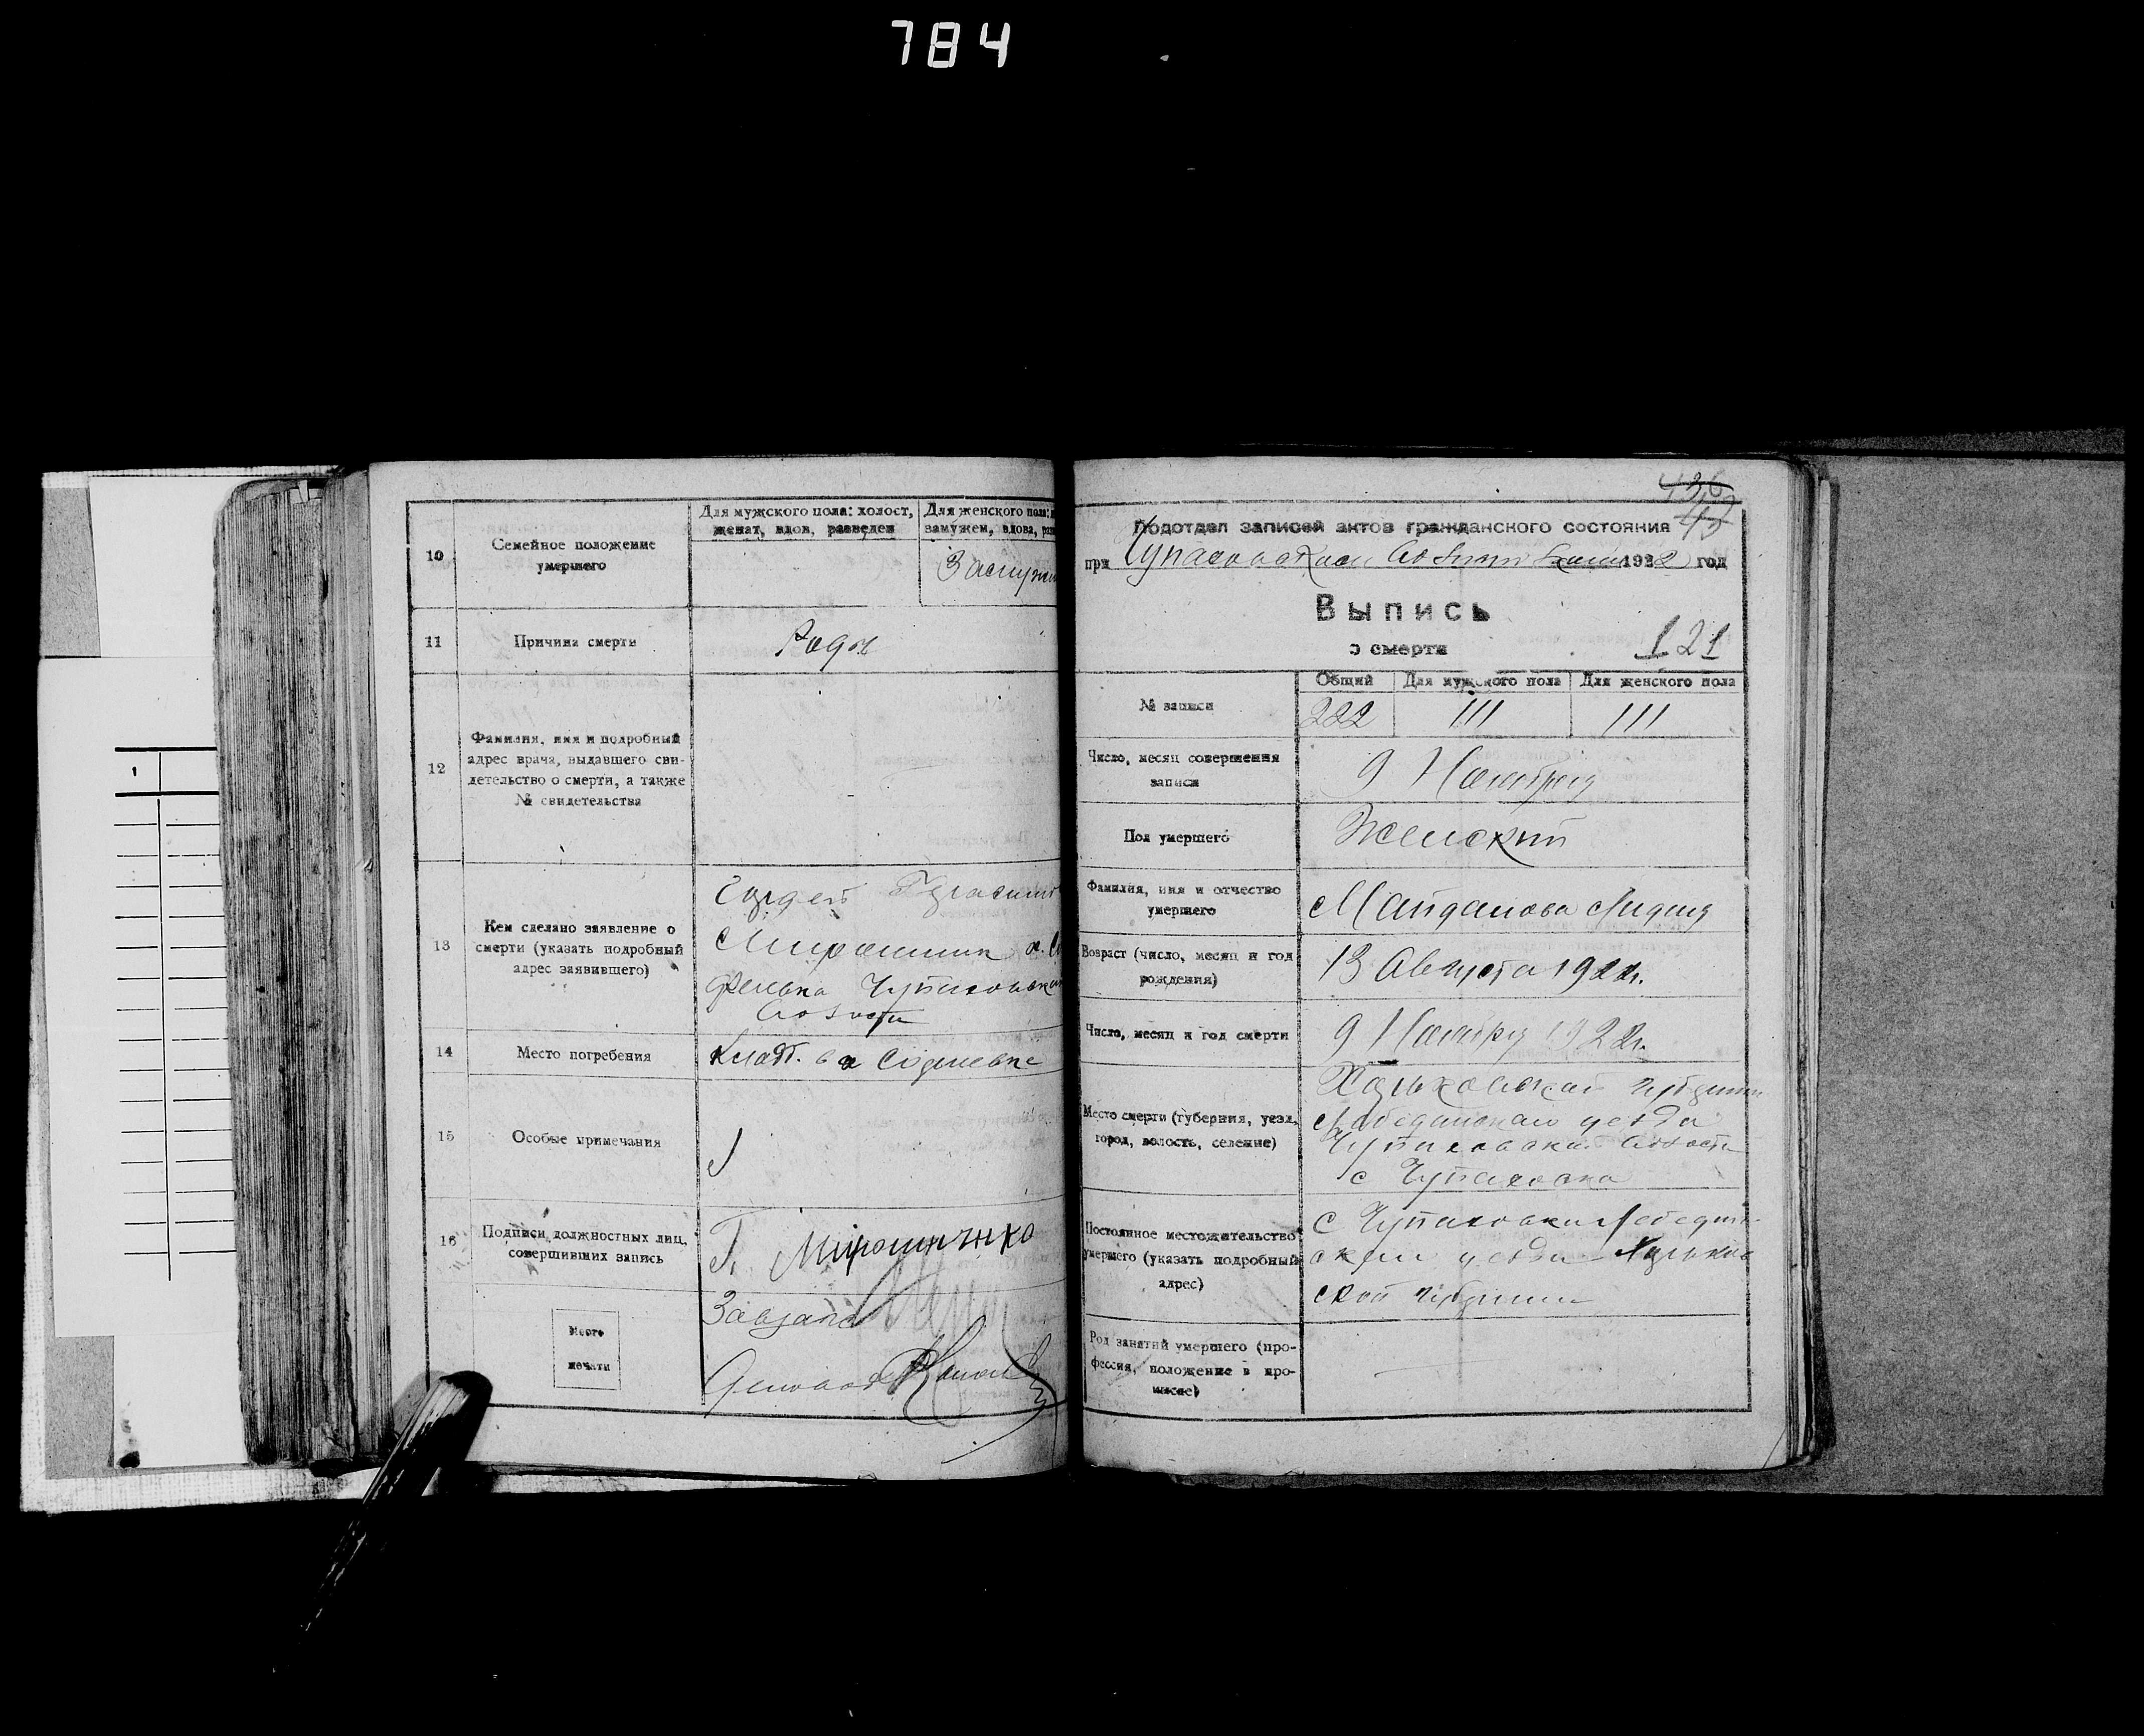 784
10
Семейное положение
умершего
Для мужского пола: холост,
женат, вдов, разведен
Для женского пола:
замужем, вдова,
Замужем
11
Причина смерти
Родов
12
Фамилия, имя и подробный
адрес врача, выдавшего сви-
детельство о смерти, а также
№ свидетельства
13
Кем сделано заявление о
смерти (указать подробный
адрес заявившего)
Гордей
Волости
14
Место погребения
Кладб.
15
Особые примечания
16
Подписи должностных лиц,
совершивших запись
Г. Мирошниченко
Место
печати
1
436
Подотдел записей актов гражданского состояния
при Чупаховской 1922 год
Выпись
о смерти
121
№ записи
Общий
Для мужского пола
Для женского пола
222
111
111
Число, месяц совершения
записи
9 Ноября
Пол умершего
Женский
Фамилия, имя и отчество
умершего
Майданова Лидия
Возраст (число, месяц и год
рождения)
13 Августа 1922г.
Число, месяц и год смерти
9 Ноября 1922г.
Место смерти (губерния, уезд,
город, волость, селение)
Харьковской губернии
Лебединского уезда
Чупаховской Волости
с Чупаховка
Постоянное местожительство
умершего (указать подробный
адрес)
с Чупаховки Лебедин-
уезда Харьков
ской губернии
Род занятий умершего (про-
фессия, положение в про-
мысле)